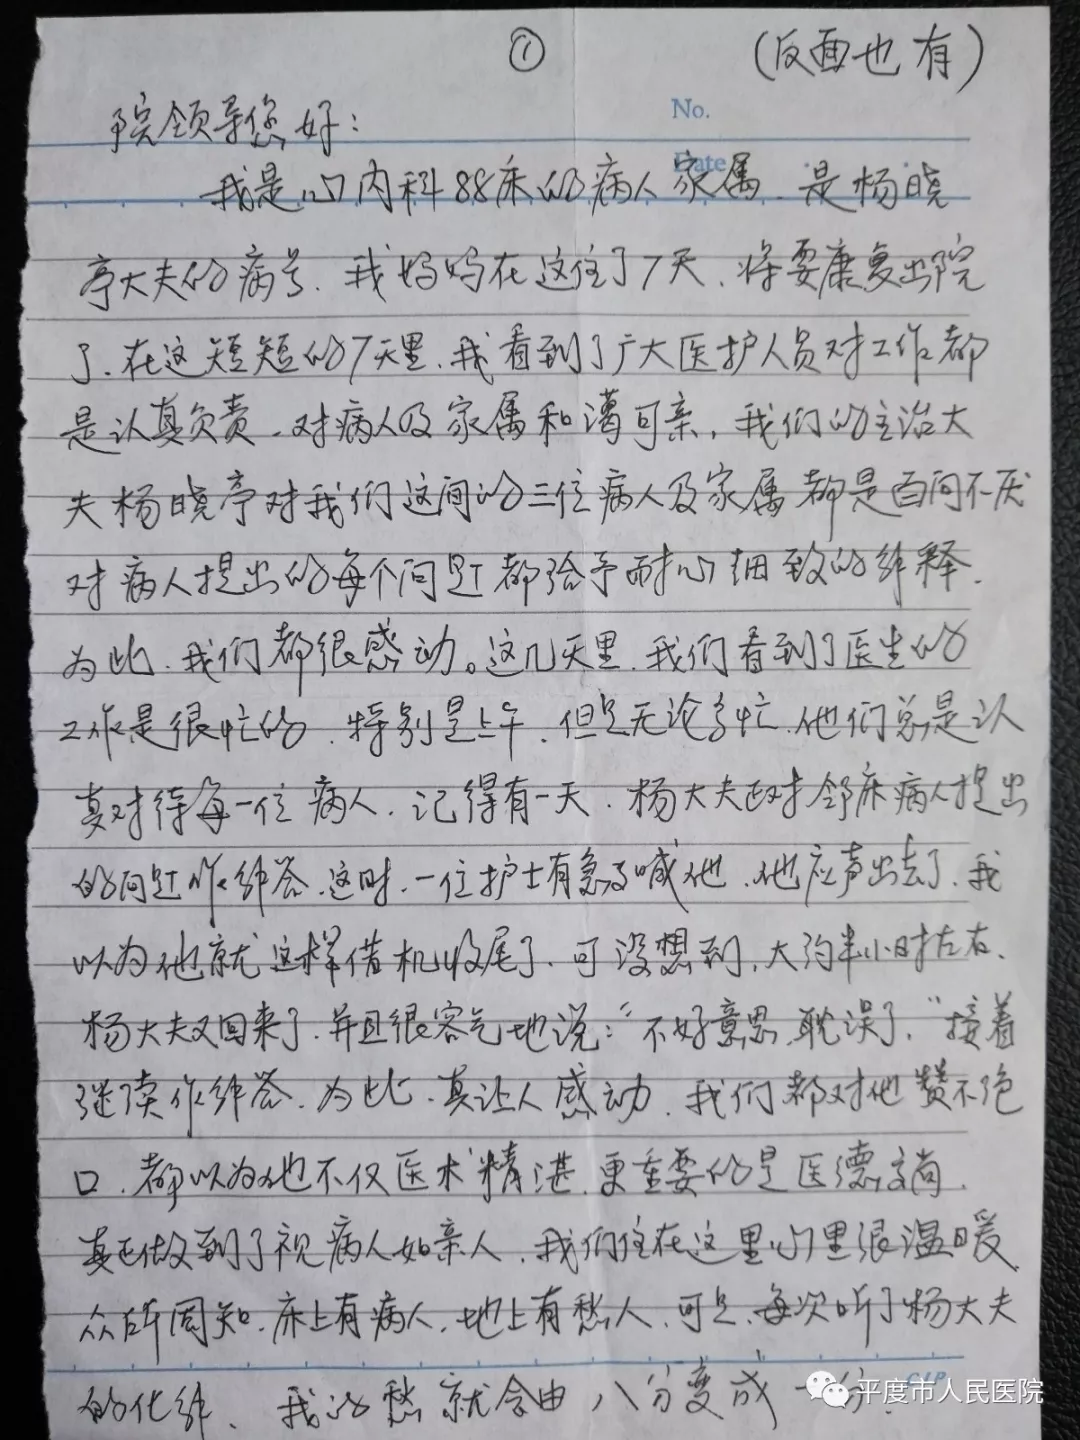 ① (反面也有)
No.
院领导您好：
Date
我是心内科88床的病人家属.是杨晓
亭大夫的病号.我妈妈在这住了7天.将要康复出院
了.在这短短的7天里.我看到了广大医护人员对工作都
是认真负责.对病人及家属和蔼可亲,我们的主治大
夫杨晓亭对我们这间的三位病人及家属都是百问不厌
对病人提出的每个问题都给予耐心细致的解释.
为此.我们都很感动。这几天里.我们看到了医生的
工作是很忙的.特别是上午.但是无论多忙.他们总是认
真对待每一位病人.记得有一天.杨大夫正对邻床病人提出
的问题作解答.这时.一位护士有急事喊他.他应声出去了.我
以为他就这样借机收尾了.可没想到,大约半小时左右.
杨大夫又回来了.并且很客气地说:“不好意思,耽误了.”接着
继续作解答.为此.真让人感动.我们都对他赞不绝
口.都以为他不仅医术精湛.更重要的是医德高尚.
真正做到了视病人如亲人.我们住在这里心里很温暖.
众所周知.床上有病人.地上有愁人.可是.每次听了杨大夫
的化解.我的愁就会由八分变成一分.
平度市人民医院